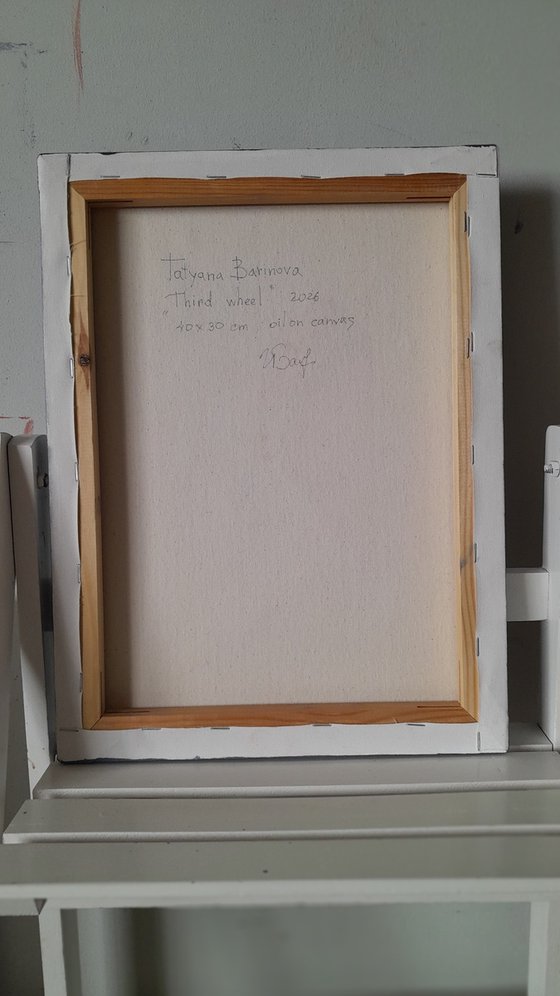 Tatyana Barinova
"Third wheel" 2026
40x30 cm, oil on canvas